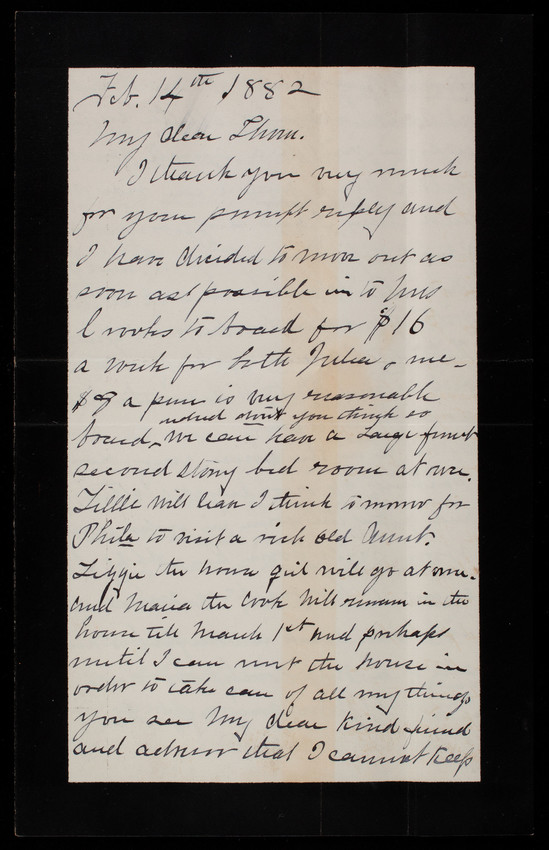 Feb. 14th 1882
My dear Thom.
I thank you very much
for your prompt reply and
I have decided to move out as
soon as possible in to Mrs
Crooks to board for $16
a week for both Julia & me -
$8 a piece is very reasonable
indeed don't you think so
board, We can have a large front
second story bed room at once.
Lillie will leave I think tomorrow for
Phila to visit a sick old Aunt.
Lizzie the house girl will go at once.
and Maria the Cook will remain in the
house till March 1st and perhaps
until I can rent the house in
order to take care of all my things
you see My dear Kind friend
and advisor that I cannot keep